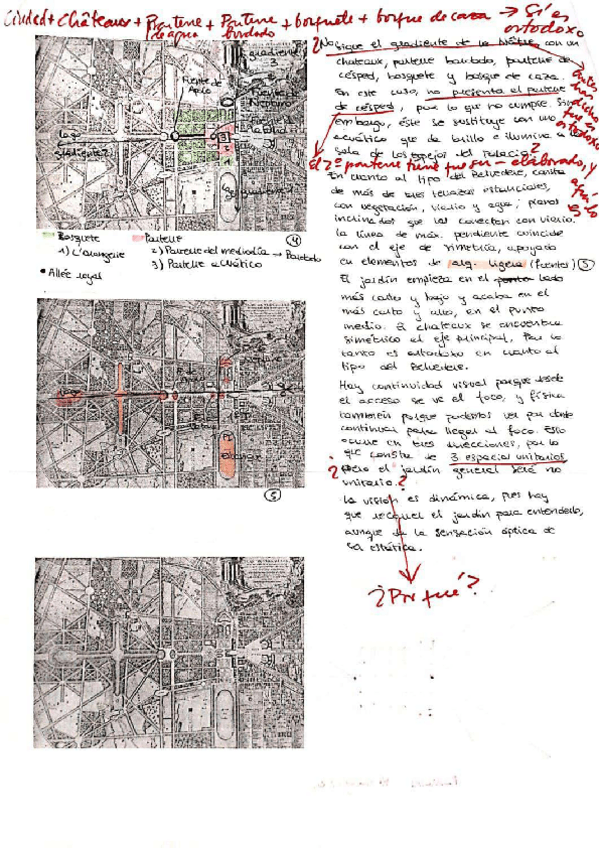 Ciudad + Châteaux + Parterre de agua + Parterre bordado + bosquete + bosque de caza → Sí es ortodoxo.
gradiente 3
Fuente de Apolo
Fuente de Neptuno
lago
gradiente 2
lago
4
Bosquete
Parterre
1) L'orangerie
2) Parterre del mediodía → Bordado
3) Parterre acuático
• Allée royal
5
¿No sigue el gradiente de Le Nôtre con un
chateaux, parterre bordado, parterre de
césped, bosquete y bosque de caza.
En este caso, no presenta el parterre
de césped, por lo que no cumple. Sin
embargo, éste se sustituye con uno
acuático que da brillo e ilumina a la
sala de los espejos del Palacio?
El 2º parterre tiene que ser - elaborado, y
En cuanto al tipo del Belvedere, consta
de más de tres terrazas
con vegetación, viario y agua; planos
inclinados que las conectan con viario.
la línea de máx. pendiente coincide
con el eje de simetría, apoyado
en elementos de arq. ligera (fuentes) 5
El jardín empieza en el lado
más corto y bajo y acaba en el
más corto y alto, en el punto
medio. El chateaux se encuentra
simétrico al eje principal, Por lo
tanto es ortodoxo en cuanto al
tipo del Belvedere.
Hay continuidad visual porque desde
el acceso se ve el foco, y física
también porque podemos ver por donde
continuar para llegar al foco. Esto
ocurre en tres direcciones, por lo
que consta de 3 espacios unitarios
¿pero el jardín general será no
unitario?
la visión es dinámica, pues hay
que recorrer el jardín para entenderlo,
aunque da la sensación óptica de
ser estática.
¿Por qué?